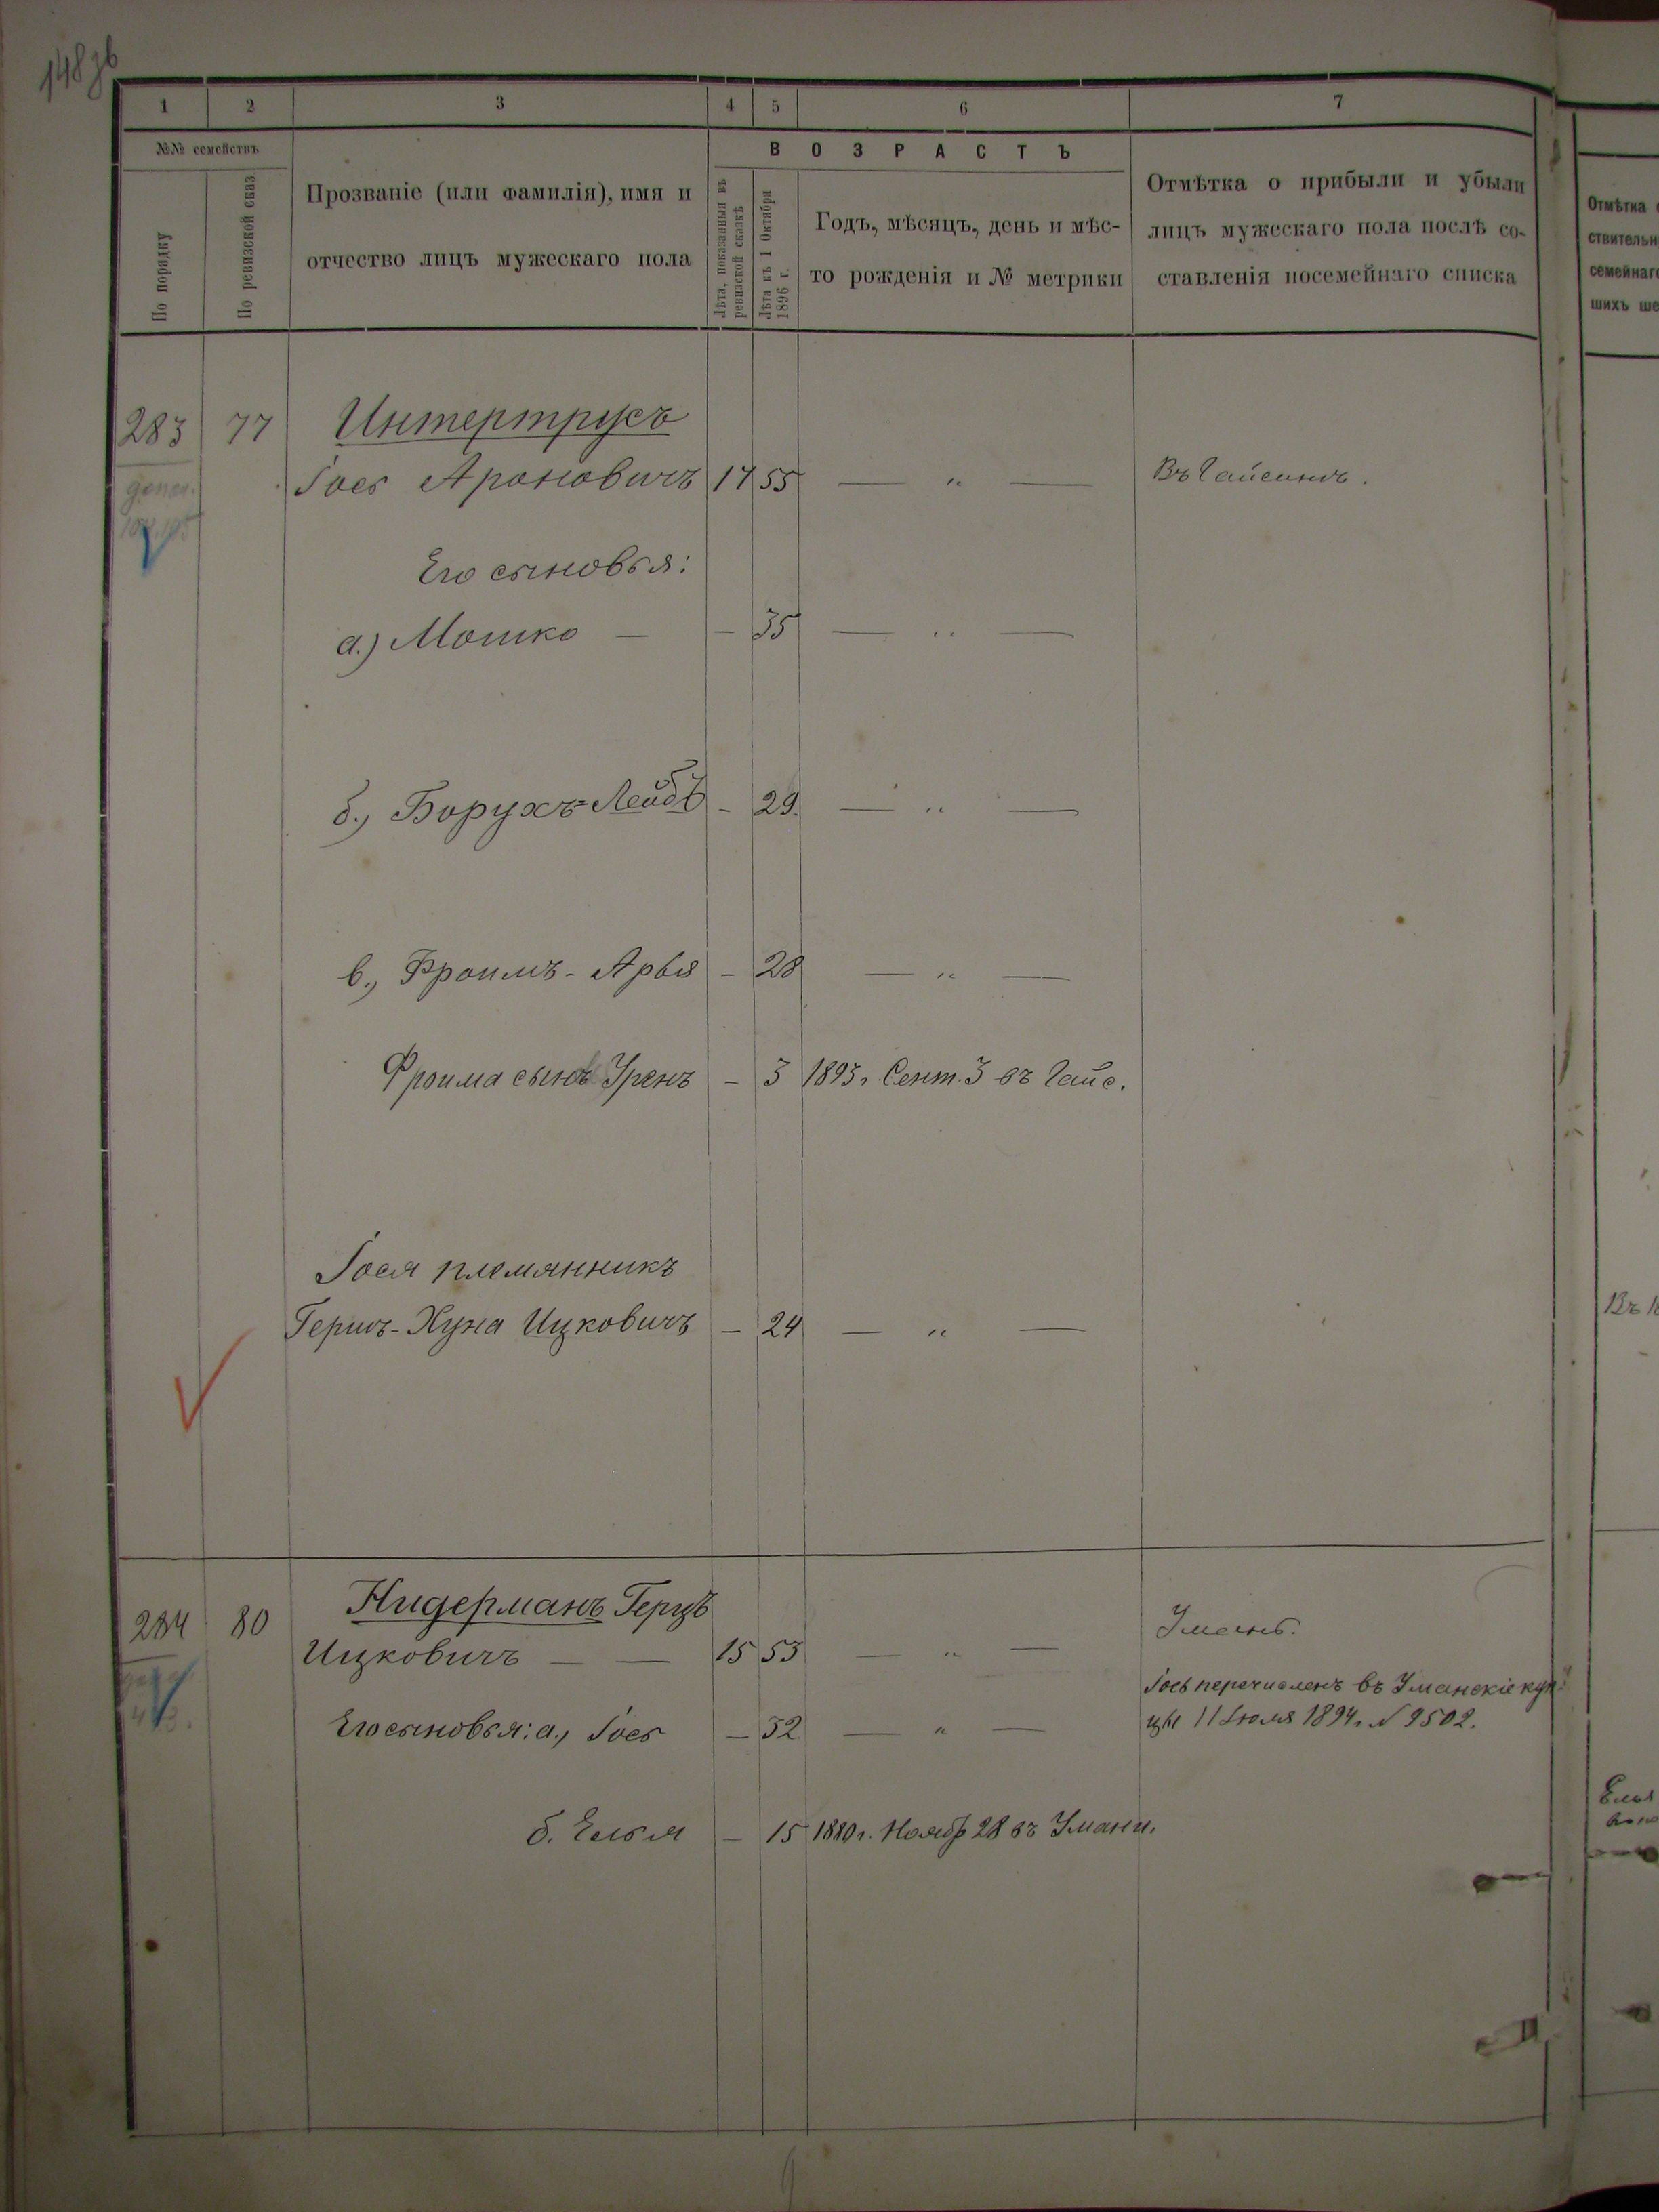 148 зв
1 2 3 4 5 6 7
№№ семействъ
В О З Р А С Т Ъ
По порядку
По ревизской сказ
Прозваніе (или фамилія), имя и
отчество лицъ мужескаго пола
Лѣта, показанныя въ
ревизской сказкѣ
Лѣта къ 1 Октября
1896 г.
Годъ, мѣсяцъ, день и мѣс-
то рожденія и № метрики
Отмѣтка о прибыли и убыли
лицъ мужескаго пола послѣ со-
ставленія посемейнаго списка
Отмѣтка
ствительн
семейнаго
шихъ ше
283 77 Интертрусъ
Іось Ароновичъ 17 55 — " — Въ Гайсинѣ.
Его сыновья:
а.) Мошко — — 35 — " —
б., Борухъ-Лейбъ — 29 — " —
в., Фроимъ-Арья — 28 — " —
Фроима сынъ Уренъ — 3 1893 г. Сент. 3 въ Гайс.
Іося племянникъ
Гершъ-Хуна Ицковичъ — 24 — " —
Въ 18
284 80 Нидерманъ Герцъ
Ицковичъ — — 15 53 — " — Умань.
Іось перечисленъ въ Уманскіе куп-
Его сыновья: а., Іось — 32 — " — цы 11 Іюля 1894 г. № 9502.
б. Елья — 15 1880 г. Нояб 28 въ Умани.
Елья